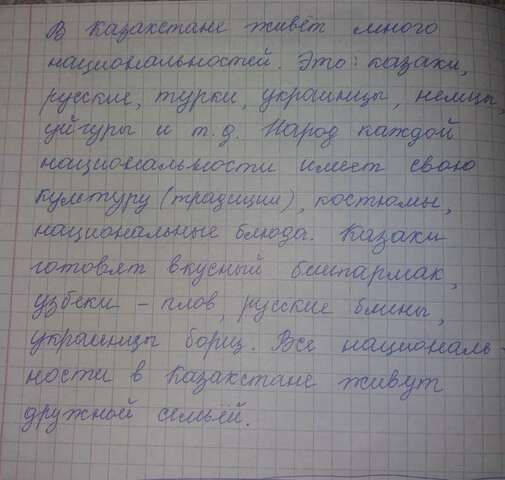 В Казахстане живёт много
национальностей. Это: казахи,
русские, турки, украинцы, немцы,
уйгуры и т.д. Народ каждой
национальности имеет свою
культуру (традиции), костюмы,
национальные блюда. Казахи
готовят вкусный бешпармак,
узбеки - плов, русские блины,
украинцы борщ. Все националь-
ности в Казахстане живут
дружной семьёй.